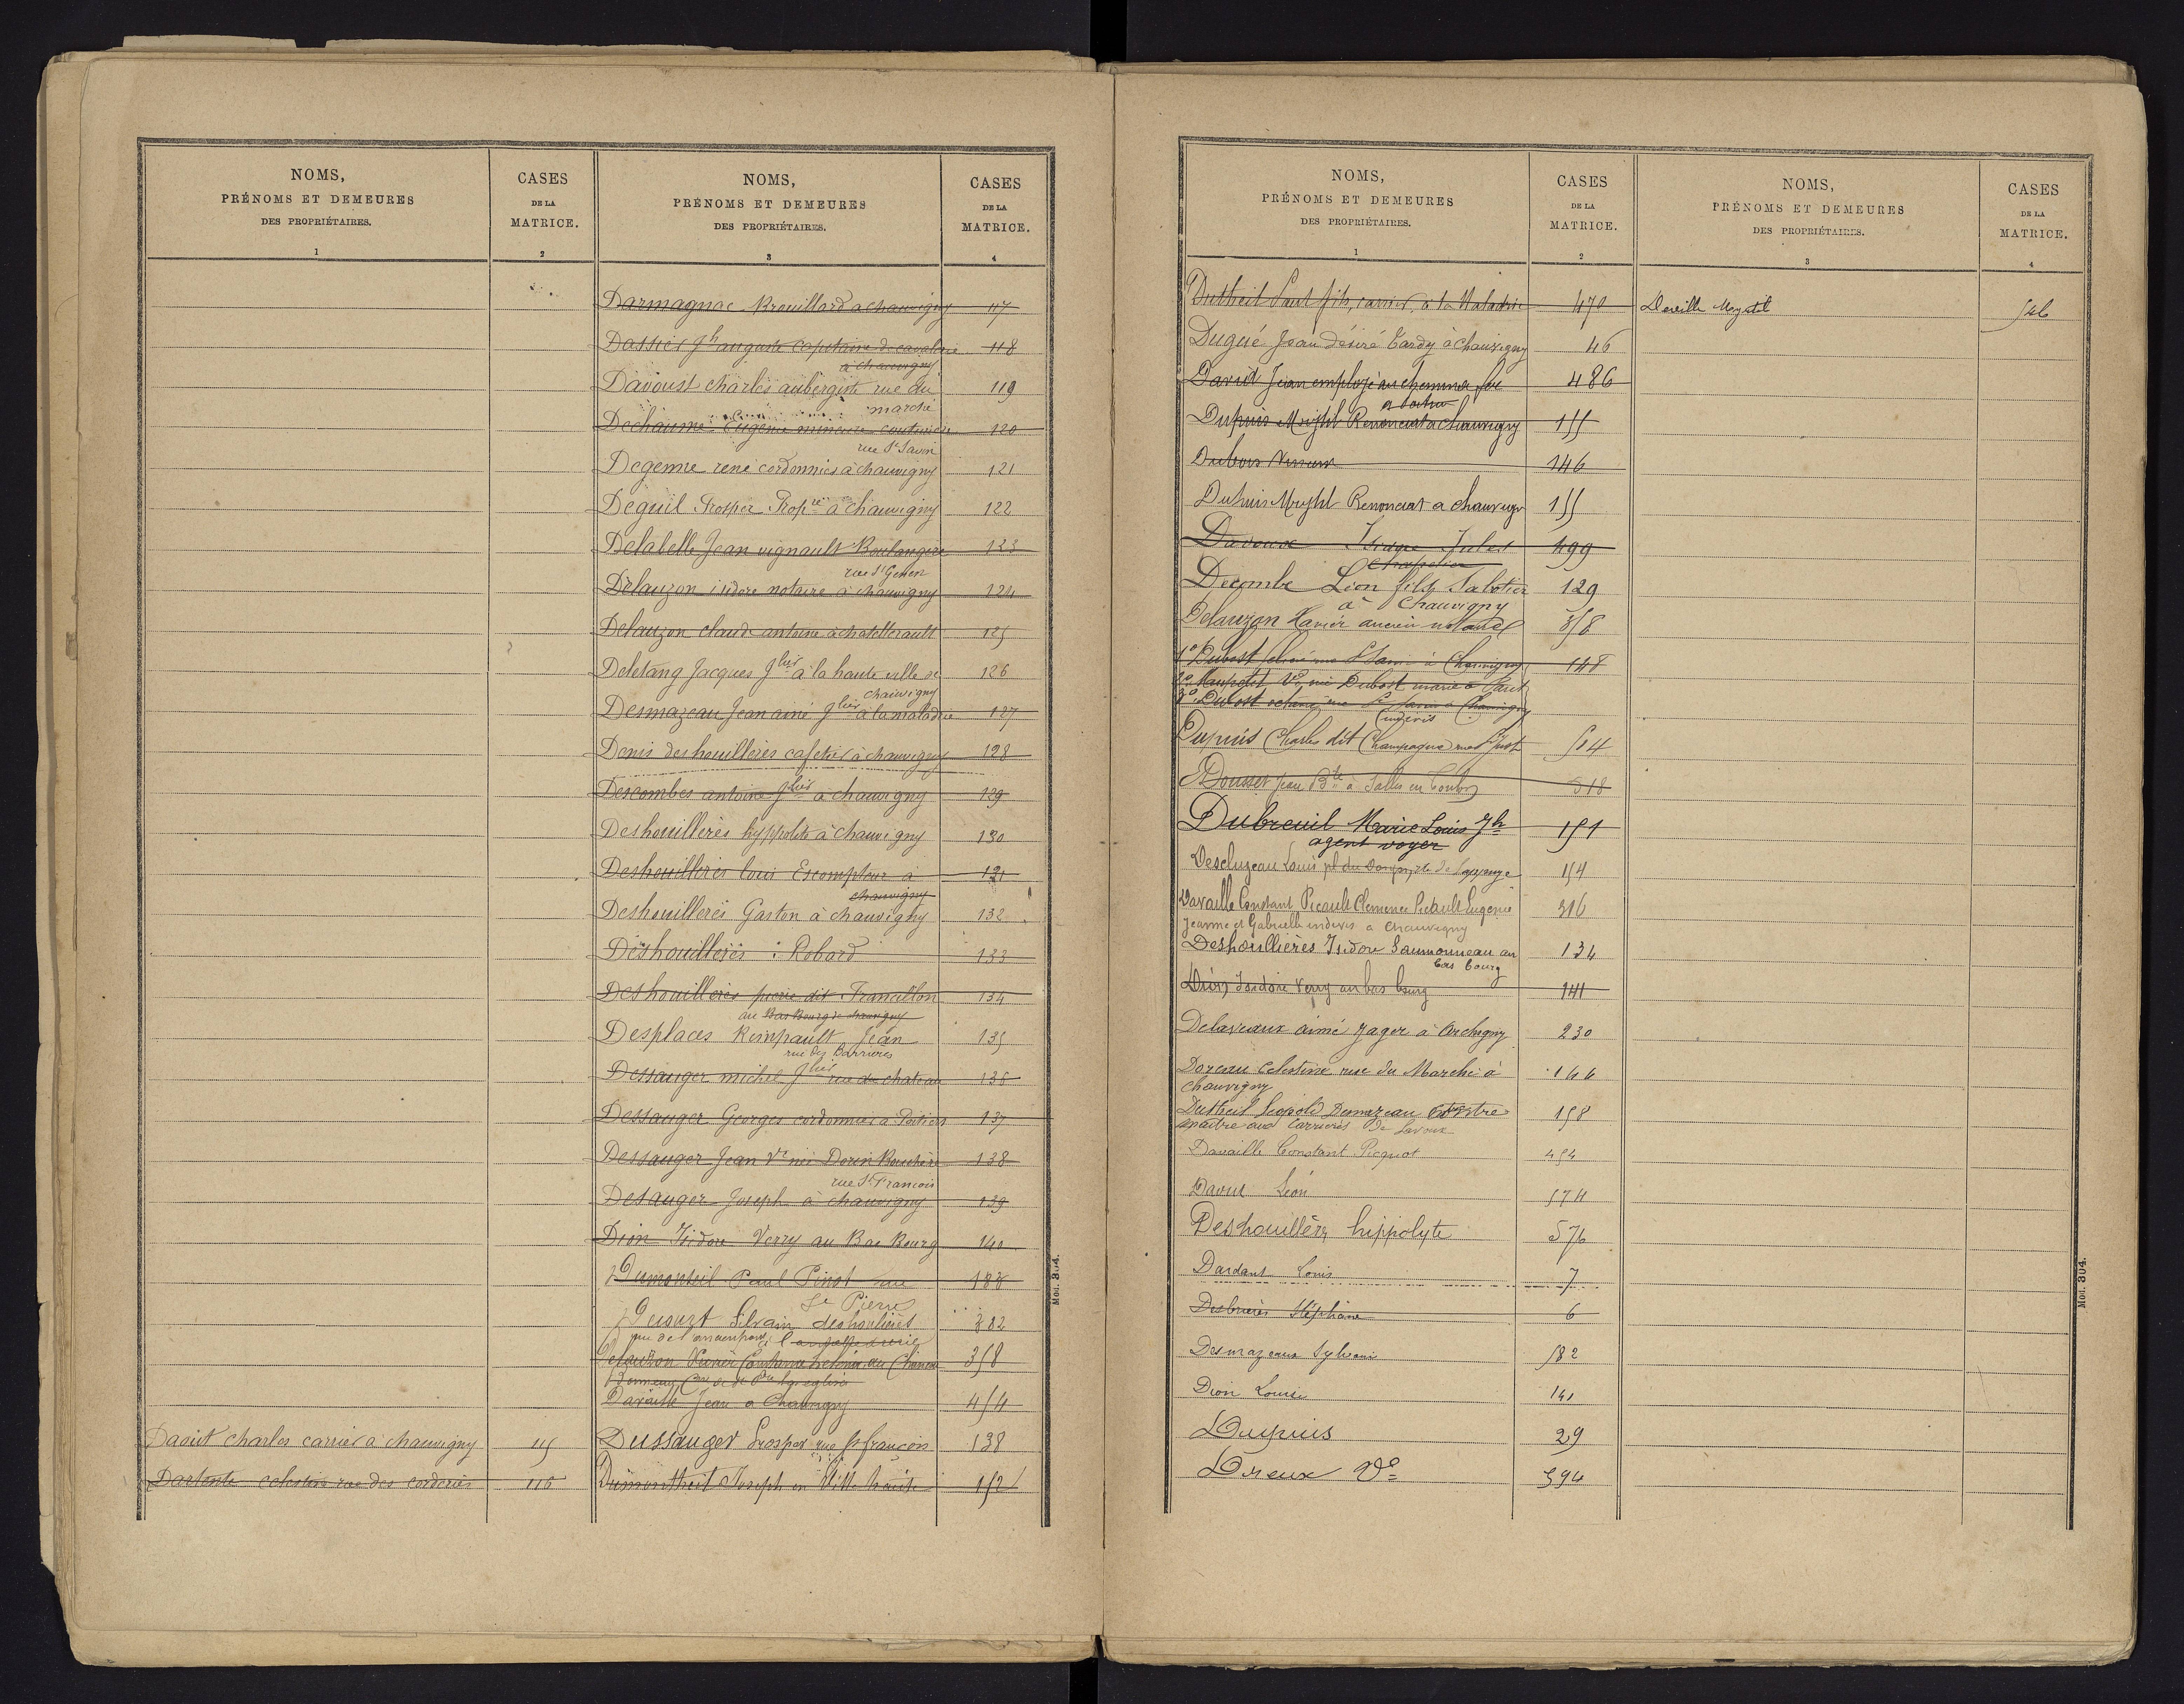 NOMS,
PRÉNOMS ET DEMEURES
DES PROPRIÉTAIRES.
1
CASES
DE LA
MATRICE.
2
Daoût charles carrier à chauvigny 115
Dartente celestin rue des corderies 116
NOMS,
PRÉNOMS ET DEMEURES
DES PROPRIÉTAIRES.
3
CASES
DE LA
MATRICE.
4
Darmagnac Brouillard a chauvigny 117
Dassier Jh auguste capitaine de cavalerie 118
à chauvigny
Davoust charles aubergiste rue du 119
marché
Dechaume Eugénie mineure couturière 120
rue St Savin
Degenne rené cordonnier à chauvigny 121
Deguil Prosper Propre à chauvigny 122
Delabelle Jean vignault Boulangère 123
rue St Genest
Delauzon isidore notaire à chauvigny 124
Delauzon claude antoine à chatellerault 125
Deletang Jacques Jlier à la haute ville de 126
chauvigny
Desmazeau Jean ainé Jlier à la maladrie 127
Denis deshouillères cafetier à chauvigny 128
Descombes antoine Jlier à chauvigny 129
Deshouillères hyppolite à chauvigny 130
Deshouillères louis Escompteur à 131
chauvigny
Deshouillerès Gaston à chauvigny 132
Deshouillères : Robard 133
Deshouillères pierre dit Francillon 134
au Bas Bourg de chauvigny
Desplaces Rempault Jean 135
rue des Barrières
Dessauger michel Jlier rue du chateau 136
Dessauger Georges cordonnier à Poitiers 137
Dessauger Jean Ve née Dorin Bouchère 138
rue St François
Desauger Joseph à chauvigny 139
Dion Isidore Verry au Bas Bourg 140
Dumonteil Paul Pinot rue 188
St Pierre
Silvain deshoulières 382
Delauzon Xavier 358
Davaille Jean a Chauvigny 454
Dessauger Prosper rue St françois 138
Dumontheil Joseph en Ville haute 152
Mod. 304.
NOMS,
PRÉNOMS ET DEMEURES
DES PROPRIÉTAIRES.
1
CASES
DE LA
MATRICE.
2
Dutheil Paul fils, carrier, à la Maladrie 470
Dugué Jean désiré Tardy à Chauvigny 46
David Jean employé au chemin de fer 486
Dupuis Renonciat a chauvigny 155
Dubois 146
Dupuis Renonciat a chauvigny 155
Davoux Isidore Jules 499
Chapelier
Decombe Léon fils Sabotier 129
à Chauvigny
Delauzon Xavier ancien notaire 358
1° Dubost rue St Savin à Chauvigny 148
2° Maupetit Ve née Dubost
3° Dubost rue St Savin à Chauvigny
Dupuis Charles dit Champagne rue St Just 504
Dousset Jean Bte à Salles en Toulon 518
Dubreuil Marie Louis Jh 151
agent voyer
Descluzeau Louis 154
Davaille Constant Picault Clemence Picault Eugenie 316
Jeanne et Gabrielle indivis a Chauvigny
Deshoullières Isidore Saumonneau au 134
bas bourg
Isidore Verry au bas bourg 141
Delavaux aimé Jager à Archigny 230
Doreau Celestine rue du Marché à 144
Chauvigny
Dutheil Léopold Desmazeau 158
maitre aux Carrières de Lavoux
Davaille Constant Picquot 454
Léon 574
Deshouillèrs hippolyte 576
Dardant Louis 7
Desbrières Stéphane 6
Desmazeaux Sylvain 582
Dion Louis 141
Dupuis 29
Dreux Ve 394
NOMS,
PRÉNOMS ET DEMEURES
DES PROPRIÉTAIRES.
3
CASES
DE LA
MATRICE.
4
546
Mod. 304.